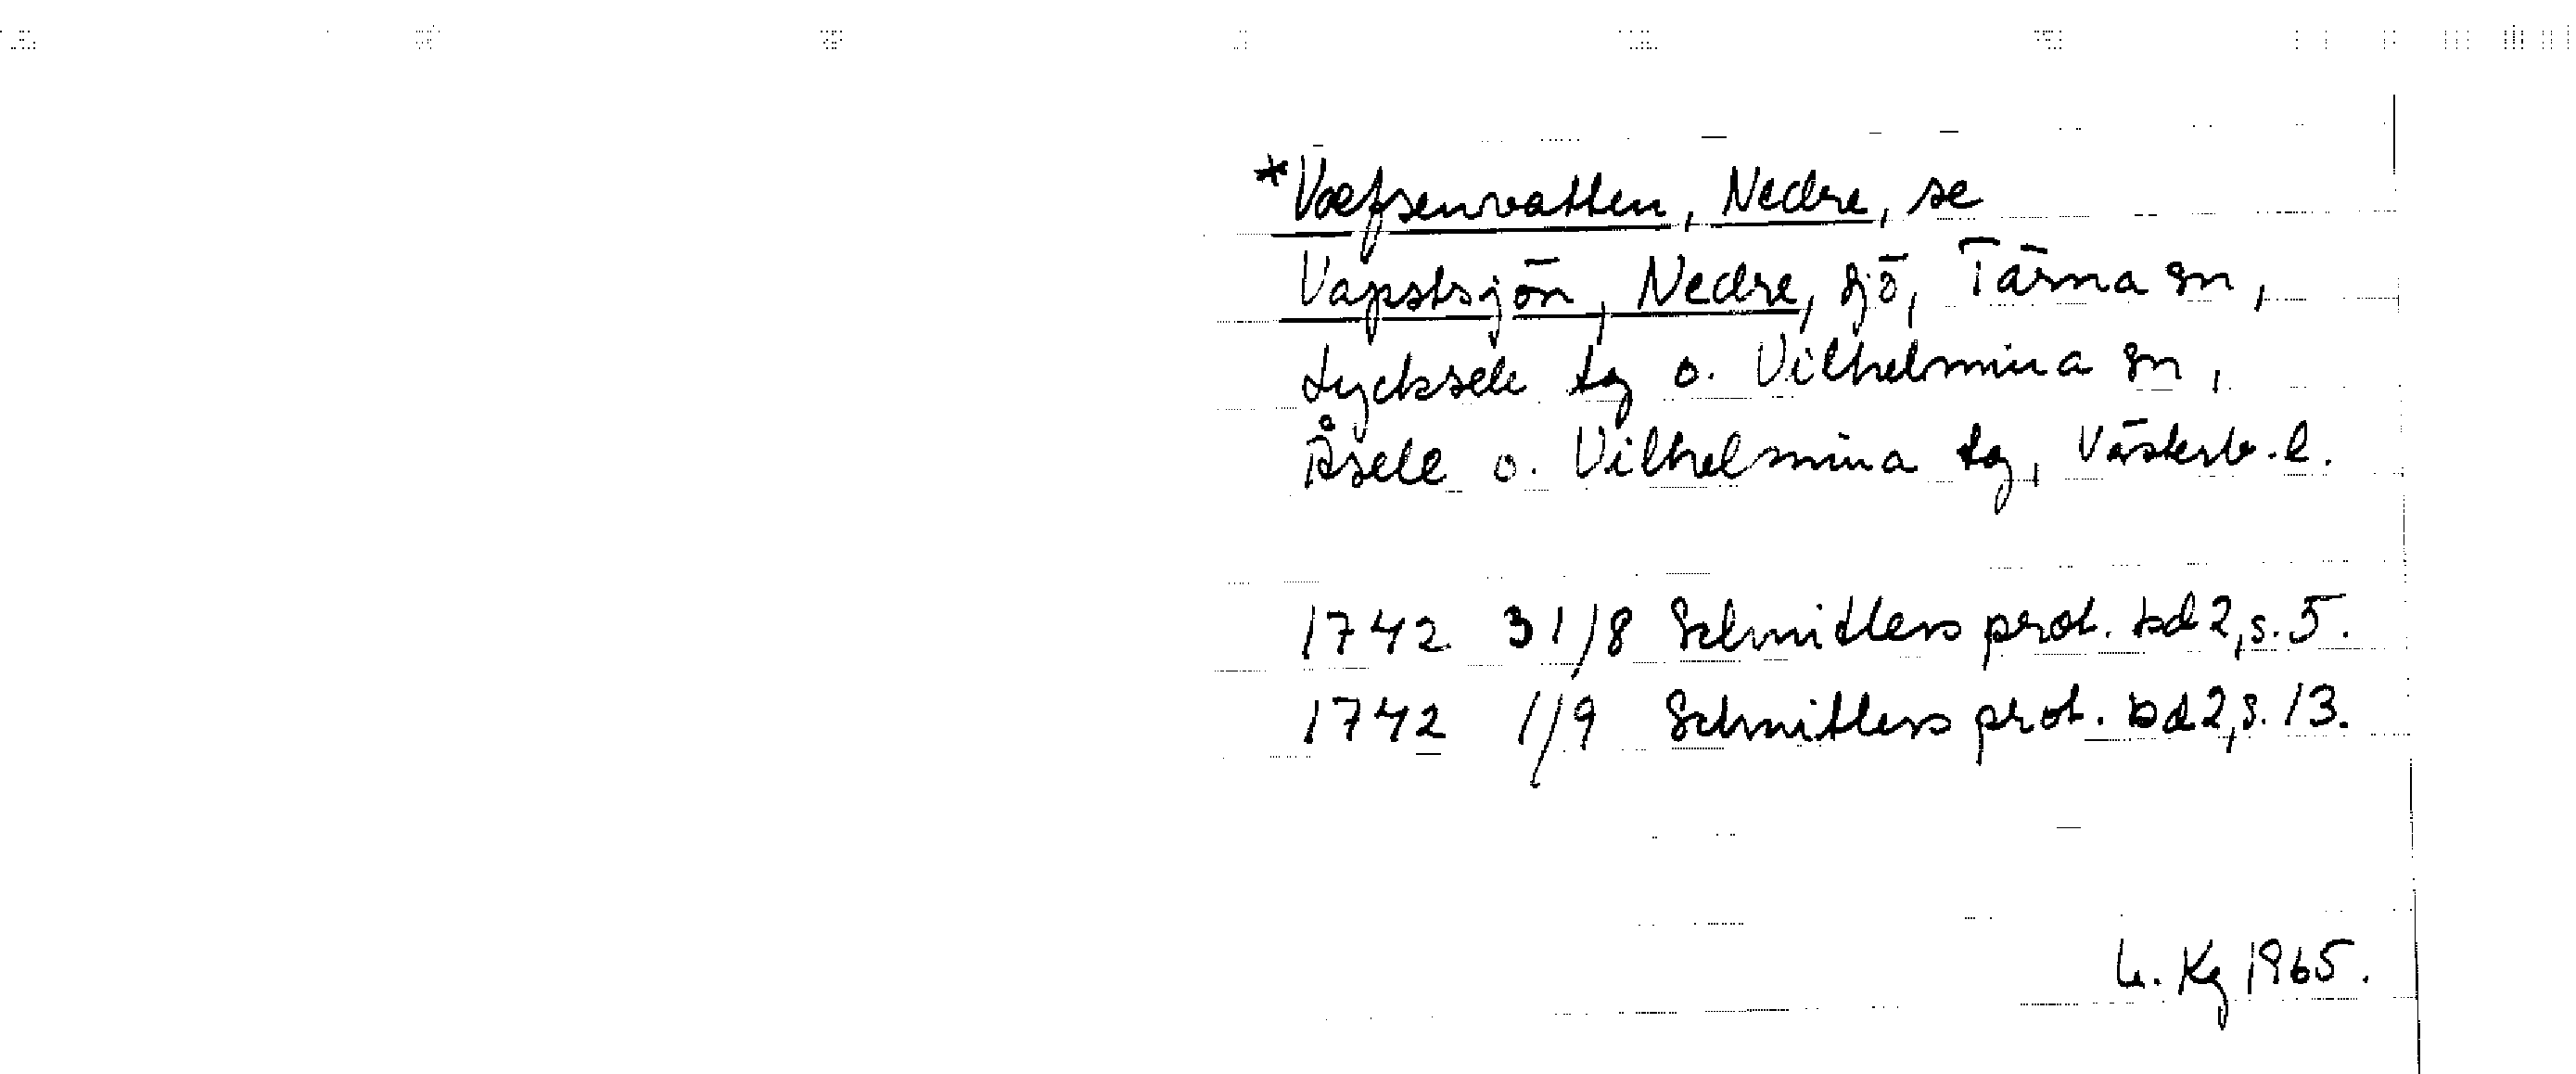 *Vœfsenvatten, Nedre, se
Vapstsjön, Nedre, sjö, Tärna sn,
Lycksele tg o. Vilhelmina sn,
Åsele o. Vilhelmina tg, Västerb. l.
1742 31/8 Schnitlers prot. bd 2, s. 5.
1742 1/9 Schnitlers prot. bd 2, s. 13.
Kg 1965.